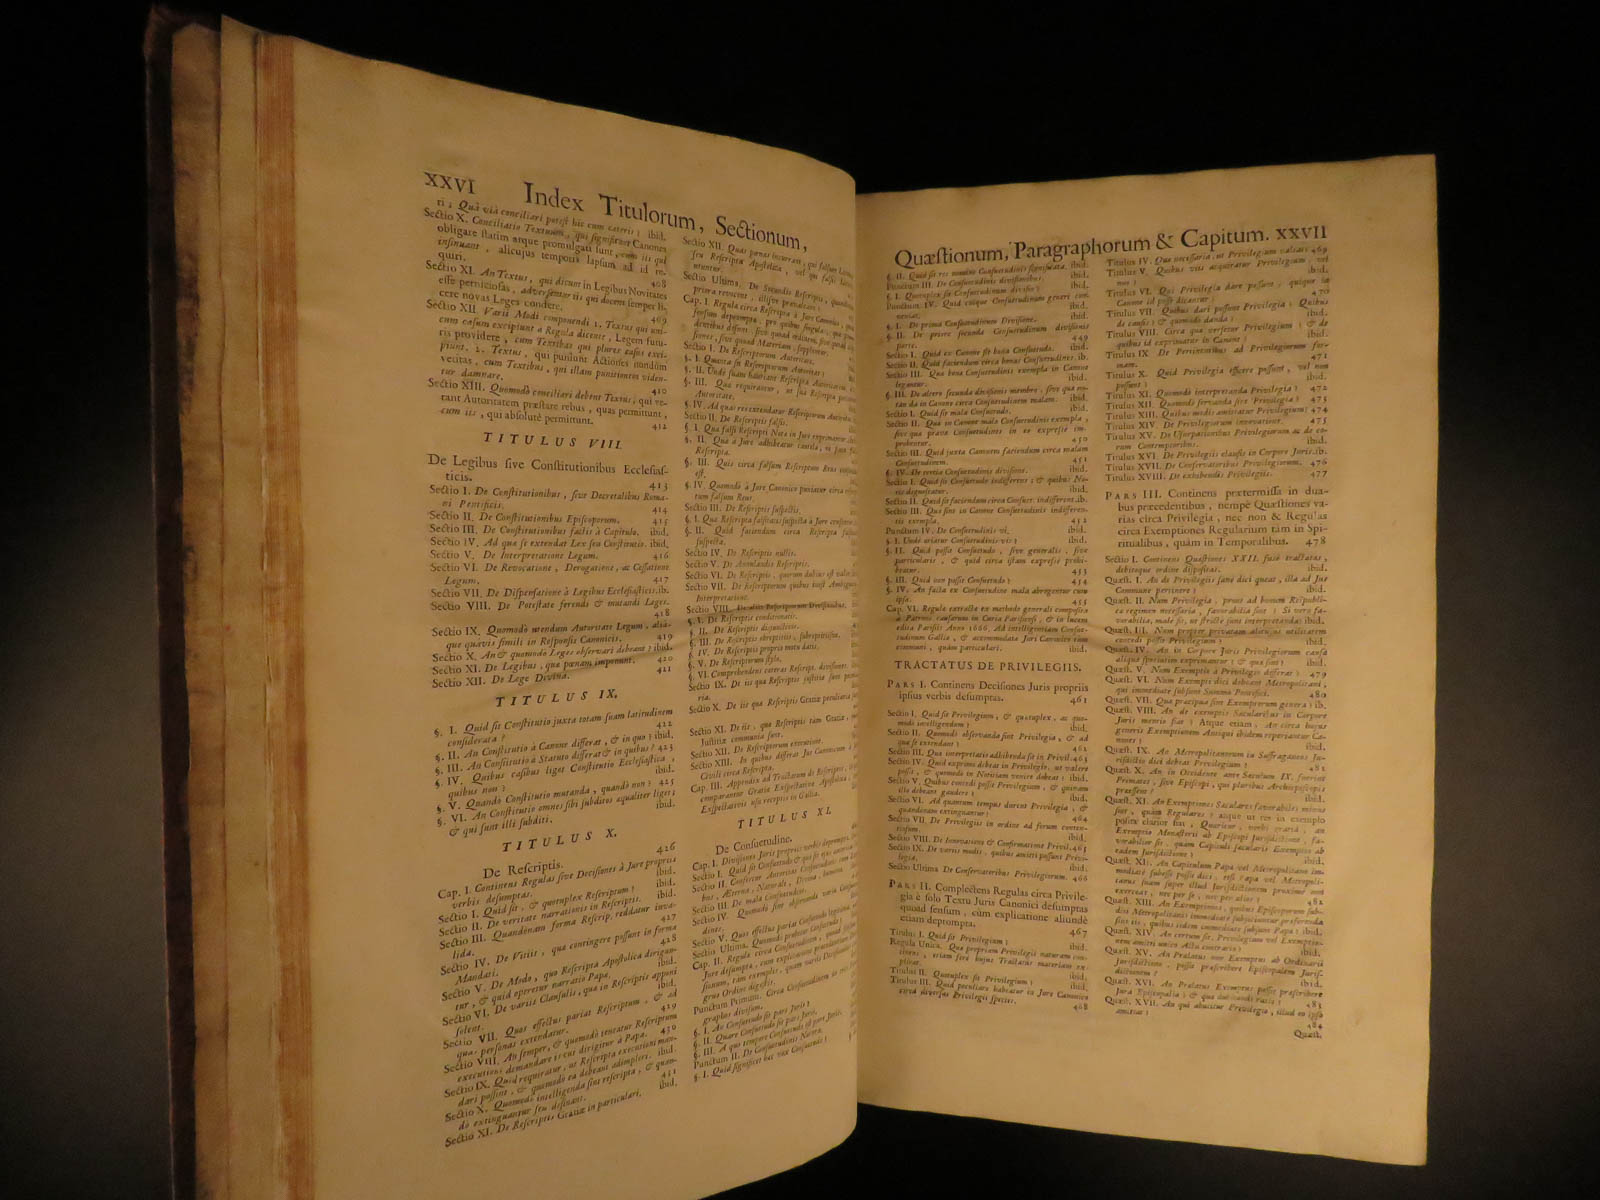 XXVI Index Titulorum, Sectionum,
ri; Quâ viâ conciliari potest hic cum cæteris? ibid.
Sectio X. Conciliatio Textuum, qui significant Canones
obligare statim atque promulgati sunt, cum iis qui
insinuant, alicujus temporis lapsum ad id re-
quiri. 408
Sectio XI. An Textus, qui dicunt in Legibus Novitates
esse perniciosas, adversentur iis qui docent semper li-
cere novas Leges condere. 409
Sectio XII. Varii Modi componendi 1. Textus qui uni-
cum casum excipiunt à Regula dicente, Legem futu-
ris providere, cum Textibus qui plures casus exci-
piunt. 2. Textus, qui puniunt Actiones nondum
vetitas, cum Textibus, qui illam punitionem viden-
tur damnare. 410
Sectio XIII. Quomodò conciliari debent Textus, qui ve-
tant Autoritatem præsture rebus, quas permittunt,
cum iis, qui absolutè permittunt. 412
TITULUS VIII.
De Legibus sive Constitutionibus Ecclesias-
ticis. 413
Sectio I. De Constitutionibus, seu Decretalibus Roma-
ni Pontificis. 414
Sectio II. De Constitutionibus Episcoporum. 415
Sectio III. De Constitutionibus factis à Capitulo. ibid.
Sectio IV. Ad quæ se extendat Lex seu Constitutio. ibid.
Sectio V. De Interpretatione Legum. 416
Sectio VI. De Revocatione, Derogatione, ac Cessatione
Legum. 417
Sectio VII. De Dispensatione à Legibus Ecclesiasticis. ib.
Sectio VIII. De Potestate ferendi & mutandi Leges.
418
Sectio IX. Quomodò utendum Autoritate Legum, aliâ-
que quâvis simili in Responsis Canonicis. 419
Sectio X. An & quomodo Leges observari debeant? ibid.
Sectio XI. De Legibus, quæ pœnam imponunt. 420
Sectio XII. De Lege Divina. 421
TITULUS IX.
§. I. Quid sit Constitutio juxta totam suam latitudinem
considerata? 422
§. II. An Constitutio à Canone differat, & in quo? ibid.
§. III. An Constitutio à Statuto differat & in quibus? 423
§. IV. Quibus casibus ligat Constitutio Ecclesiastica,
quibus non? ibid.
§. V. Quando Constitutio mutanda, quando non? 425
§. VI. An Constitutio omnes sibi subditos æqualiter liget;
& qui sunt illi subditi. ibid.
TITULUS X.
De Rescriptis. 426
Cap. I. Continens Regulas sive Decisiones à Jure propriis
verbis desumptas. ibid.
Sectio I. Quid sit, & quotuplex Rescriptum? ibid.
Sectio II. De veritate narrationis in Rescriptis. ibid.
Sectio III. Quandònam forma Rescrip. reddatur inva-
lida. 427
Sectio IV. De Vitiis, quæ contingere possunt in forma
Mandati. 428
Sectio V. De Modo, quo Rescripta Apostolica dirigun-
tur, & quid operetur narratio Papæ. ibid.
Sectio VI. De variis Clausulis, quæ in Rescriptis apponi
solent. ibid.
Sectio VII. Quos effectus pariat Rescriptum, & ad
quas personas extendatur. 429
Sectio VIII. An semper, & quomodò teneatur Rescriptum
executioni demandare is cui dirigitur à Papa. 430
Sectio IX. Quid requiratur, ut Rescripta executioni man-
dari possint, & quomodò ea debeant adimpleri. ibid.
Sectio X. Quomodò intelligenda sint rescripta, & quan-
dò extinguantur seu desinant. 431
Sectio XI. De Rescriptis Gratiæ in particulari. ibid.
Sectio XII. Quas pœnas incurrant, qui falsant Literas
seu Rescripta Apostolica, vel qui falsis
untuntur.
Sectio Ultima. De Secundis Rescriptis, quando
priora revocent, illisve prævaleant?
Cap. I. Regulæ circa Rescripta à Jure Canonico,
sensum deprompta, pro quibus singula,
Sectio I. De Rescriptorum Autoritate.
§. I. Quanta sit Rescriptorum Autoritas?
§. II. Unde suam hauriant Rescripta Autoritatem.
§. III. Quæ requirantur, ut sua Rescriptis
Autoritate.
§. IV. Ad quas res extendatur Rescriptorum Autoritas.
Sectio II. De Rescriptis falsis.
§. I. Quæ falsi Rescripti Nota in Jure exprimantur. ibid.
§. II. Quæ à Jure adhibeatur cautela, ne
Rescripta.
§. III. Quis circa falsum Rescriptum Reus
est.
§. IV. Quomodò à Jure Canonico puniatur circa rescrip-
tum falsum Reus.
Sectio III. De Rescriptis suspectis.
§. I. Quæ Rescripta falsitatis suspecta à Jure censentur.
§. II. Quid faciendum circa Rescripta
suspecta.
Sectio IV. De Rescriptis nullis.
Sectio V. De Annullandis Rescriptis.
Sectio VI. De Rescriptis, quorum dubius est valor.
Sectio VII. De Rescriptorum quibus inest Ambiguitas
Interpretatione.
Sectio VIII. De aliis Rescriptorum Divisionibus.
§. I. De Rescriptis conditionatis.
§. II. De Rescriptis disjunctivis.
§. III. De Rescriptis obreptitiis, subreptitiisve.
§. IV. De Rescriptis proprio motu datis.
§. V. De Rescriptorum stylo.
§. VI. Comprehendens cæteras Rescript. divisiones.
Sectio IX. De iis quæ Rescriptis justitiæ sunt propria
ria.
Sectio X. De iis quæ Rescriptis Gratiæ peculiaria sunt.
Sectio XI. De iis, quæ Rescriptis tùm Gratiæ,
Justitiæ communia sunt.
Sectio XII. De Rescriptorum executione.
Sectio XIII. In quibus differat Jus Canonicum à
Civili circa Rescripta.
Cap. III. Appendix ad Tractatum de Rescriptis,
comparantur Gratiæ Exspectativæ Apostolicæ,
Exspectativis usu receptis in Gallia.
TITULUS XI.
De Consuetudine.
Cap. I. Divisiones Juris propriis verbis depromptæ.
Sectio I. Quid sit Consuetudo
Sectio II. Confertur Autoritas Consuetudinis
bus, Æterna, Naturali, Divina, humana
Sectio III. De mala Consuetudine.
Sectio IV. Quid sit observandum circa
dines.
Sectio V. Quos effectus pariat Consuetudo legitima
Sectio Ultima. Quomodo probetur Consuetudo?
Cap. II. Regulæ circa Consuetudinem, quoad
Jure desumptæ, cum explicatione
sensum, tum exemplis, quam variis Divisionibus
grus Ordine digestis.
Punctum Primum. Circa Consuetudinem
graphos divisum.
§. I. An Consuetudo sit pars Juris?
§. II. Quare Consuetudo sit pars Juris.
§. III. A quo tempore Consuetudo sit pars Juris.
Punctum II. De Consuetudinis Natura.
§. I. Quid significet hæc vox Consuetudo?
Quæstionum, Paragraphorum & Capitum. XXVII
§. II. Quid sit res nomine Consuetudinis significata. ibid.
Punctum III. De Consuetudinis divisionibus. ibid.
§. I. Quotuplex sit Consuetudinum divisio? ibid.
Punctum IV. Quid cuique Consuetudinum generi con-
veniat. ibid.
§. I. De prima Consuetudinum Divisione. ibid.
§. II. De priore secundæ Consuetudinum divisionis
parte. 449
Sectio I. Quid ex Canone sit bona Consuetudo. ibid.
Sectio II. Quid faciendum circa bonas Consuetudines. ib.
Sectio III. Quæ bonæ Consuetudinis exempla in Canone
leguntur. ibid.
§. III. De altero secundæ divisionis membro, sive quæ no-
tan da in Canone circa Consuetudinem malam. ibid.
Sectio I. Quid sit mala Consuetudo. ibid.
Sectio II. Quæ in Canone malæ Consuetudinis exempla,
sive quæ pravæ Consuetudines in eo expressè im-
probentur. 450
Sectio III. Quid juxta Canones faciendum circa malam
Consuetudinem. 451
§. IV. De tertia Consuetudinis divisione. ibid.
Sectio I. Quid sit Consuetudo indifferens; & quibus No-
tis dignoscatur. ibid.
Sectio II. Quid sit faciendum circa Consuet. indifferent. ib.
Sectio III. Quæ sint in Canone Consuetudinis indifferen-
tis exempla. 452
Punctum IV. De Consuetudinis vi. ibid.
§. I. Unde oriatur Consuetudinis vis? ibid.
§. II. Quid possit Consuetudo, sive generalis, sive
particularis, & quid circa istam expressè prohi-
beatur. 453
§. III. Quid non possit Consuetudo? 454
§. IV. An facta ex Consuetudine mala abrogentur cum
ipsa. 455
Cap. VI. Regulæ extractæ ex methodo generali composita
à Patronis causarum in Curia Parisiensi, & in lucem
edita Parisiis Anno 1666. Ad intelligentiam Consue-
tudinum Galliæ, & accommodatæ Juri Canonico cùm
communi, quàm particulari. ibid.
TRACTATUS DE PRIVILEGIIS.
PARS I. Continens Decisiones Juris propriis
ipsius verbis desumptas. 461
Sectio I. Quid sit Privilegium, & quotuplex, ac quo-
modò intelligendum? ibid.
Sectio II. Quomodò observanda sint Privilegia, & ad
quæ se extendant? 462
Sectio III. Quæ interpretatio adhibenda sit in Privil. 463
Sectio IV. Quid exprimi debeat in Privilegio, ut valere
possit, & quomodo in Notitiam venire debeat? ibid.
Sectio V. Quibus concedi possit Privilegium, & quinam
illo debeant gaudere? ibid.
Sectio VI. Ad quantum tempus durent Privilegia, &
quandonam extinguantur? 464
Sectio VII. De Privilegiis in ordine ad forum conten-
tiosum. ibid.
Sectio VIII. De Innovatione & Confirmatione Privil. 465
Sectio IX. De variis modis, quibus amitti possunt Privi-
legia. ibid.
Sectio Ultima De Conservatoribus Privilegiorum. 466
PARS II. Complectens Regulas circa Privile-
gia è solo Textu Juris Canonici desumptas
quoad sensum, cùm explicatione aliundè
etiam deprompta. 467
Titulus I. Quid sit Privilegium? ibid.
Regula Unica. Quæ propriam Privilegii naturam con-
cernens, etiam ferè hujus Tractatus materiam ex-
plicat. ibid.
Titulus II. Quotuplex sit Privilegium? ibid.
Titulus III. Quid peculiare habeatur in Jure Canonico
circa diversas Privilegii species. 468
Titulus IV. Quæ necessaria, ut Privilegium valeat? 469
Titulus V. Quibus viis acquiratur Privilegium, vel
non? ibid.
Titulus VI. Quid Privilegia dare possent, quique in
Canone id posse dicantur? 470
Titulus VII. Quibus dari possunt Privilegia? Quibus
de causis? & quomodo danda? ibid.
Titulus VIII. Circa quæ versetur Privilegium? & de
quibus id exprimatur in Canone? ibid.
Titulus IX De Pertinentibus ad Privilegiorum for-
mam. 471
Titulus X. Quid Privilegia efficere possint, vel non
possint? ibid.
Titulus XI. Quomodò interpretanda Privilegia? 472
Titulus XII. Quomodò servanda sint Privilegia? 473
Titulus XIII. Quibus modis amittatur Privilegium? 474
Titulus XIV. De Privilegiorum innovatione. 475
Titulus XV. De Usurpationibus Privilegiorum ac de eo-
rum Contemptoribus. ibid.
Titulus XVI. De Privilegiis clausis in Corpore Juris. ib.
Titulus XVII. De Conservatoribus Privilegiorum. 476
Titulus XVIII. De exhibendis Privilegiis. 477
PARS III. Continens prætermissa in dua-
bus præcedentibus, nempè Quæstiones va-
rias circa Privilegia, nec non & Regulas
circa Exemptiones Regularium tàm in Spi-
ritualibus, quàm in Temporalibus. 478
Sectio I. Continens Quæstiones XXII. fusè tractatas,
debitoque ordine dispositas. ibid.
Quæst. I. An de Privilegiis sanè dici queat, illa ad Jus
Commune pertinere? ibid.
Quæst. II. Num Privilegia, prout ad bonum Reipubli-
cæ regimen necessaria, favorabilia sint? Si verò fa-
vorabilia, malè sic, ut strictè sint interpretanda? ibid.
Quæst. III. Num propter privatam alicujus utilitatem
concedi possit Privilegium? ibid.
Quæst. IV. An in Corpore Juris Privilegiorum causâ
aliqua specialim exprimantur? & quæ sint? ibid.
Quæst. V. Num Exemptio à Privilegio differat? 479
Quæst. VI. Num Exempti dici debeant Metropolitani,
qui immediatè subsunt Summo Pontifici. 480
Quæst. VII. Quæ præcipua sint Exemptorum genera? ib.
Quæst. VIII. An de exemptis Sæcularibus in Corpore
Juris mentio fiat? Atque etiam, An circa hujus
generis Exemptionem Antiqui ibidem reperiantur Ca-
nones? ibid.
Quæst. IX. An Metropolitanorum in Suffraganeos Ju-
risdictio dici debeat Privilegium? 481
Quæst. X. An in Occidente ante Sæculum IX. fuerint
Primates, sive Episcopi, qui pluribus Archiepiscopis
præessent? ibid.
Quæst. XI. An Exemptiones Sæculares favorabiles minùs
sint, quàm Regulares? atque ut res in exemplo
posita clarior fiat, Quæritur, verbi gratiâ, an
Exemptio Monasterii ab Episcopi Jurisdictione, fa-
vorabilior sit, quàm Capituli sæcularis Exemptio ab
eadem Jurisdictione? ibid.
Quæst. XII. An Capitulum Papæ vel Metropolitano im-
mediatè subesse possit dici, etsi Papa vel Metropoli-
tanus suam super illud Jurisdictionem proximè non
exerceat, nec per se, nec per alios? 482
Quæst. XIII. An Exemptio, quibus Episcoporum sub-
diti Metropolitanis immediatè subjiciuntur proferenda
sint iis, quibus immediatè subsunt Papæ? ibid.
Quæst. XIV. An certum sit, Privilegium vel Exemptio-
nem amitti unico Actu contrario? ibid.
Quæst. XV. An Prælatus non Exemptus ab Ordinarii
Jurisdictione, possit præscribere Episcopalem Juris-
dictionem? ibid.
Quæst. XVI. An Prælatus Exemptus possit præscribere
Jura Episcopalia? & quæ ducendi ratio? ibid.
Quæst. XVII. An qui abutitur Privilegio, illud eo ipso
amittat? 484
Quæst.